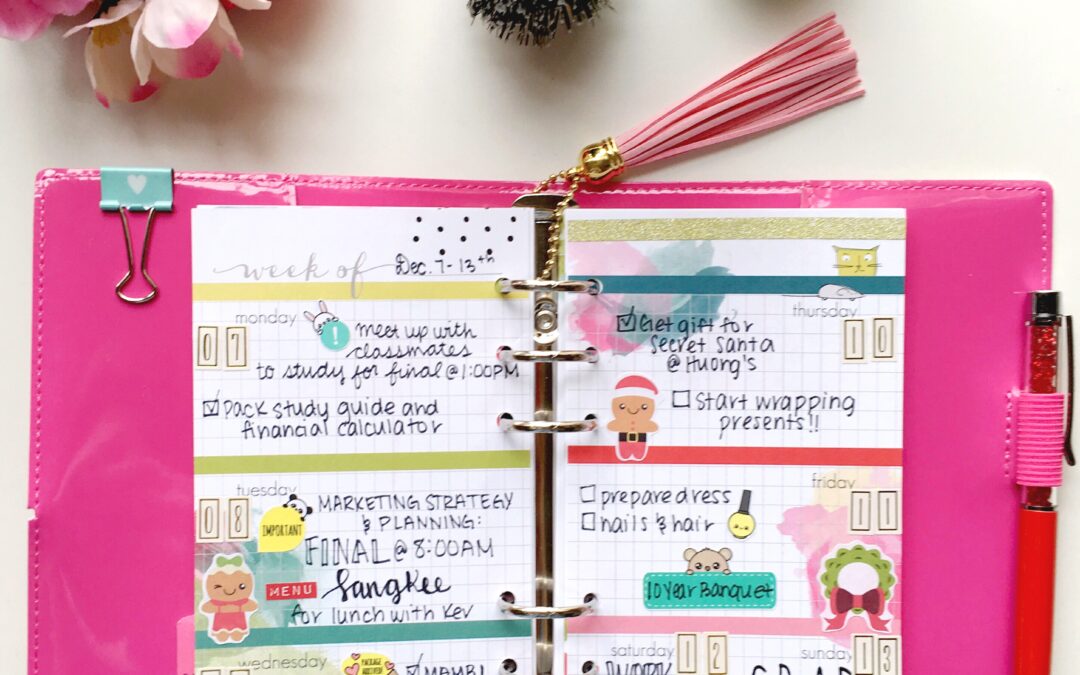 week of Dec. 7-13th
monday
07
!
meet up with
classmates
to study for final @ 1:00PM
Pack study guide and
financial calculator
tuesday
08
IMPORTANT
MARKETING STRATEGY
& PLANNING:
FINAL @ 8:00AM
MENU
SangKee
for lunch with Kev
wednesday
thursday
10
Get gift for
Secret Santa
@ Huong's
Start wrapping
presents!!
friday
11
prepare dress
nails & hair
10 Year Banquet
saturday
12
WORK
sunday
13